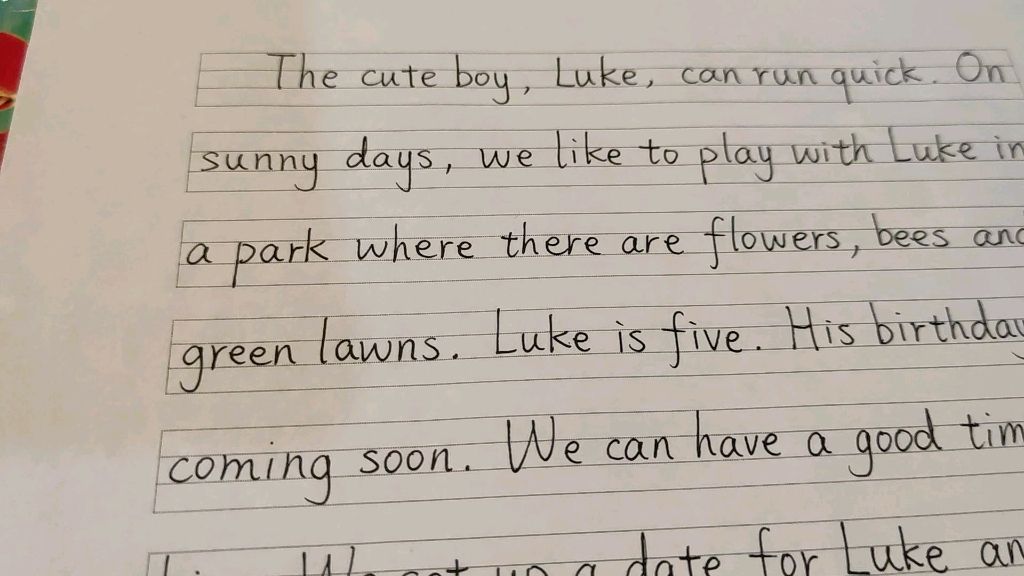 The cute boy, Luke, can run quick. On
sunny days, we like to play with Luke in
a park where there are flowers, bees and
green lawns. Luke is five. His birthday
coming soon. We can have a good tim
up a date for Luke an